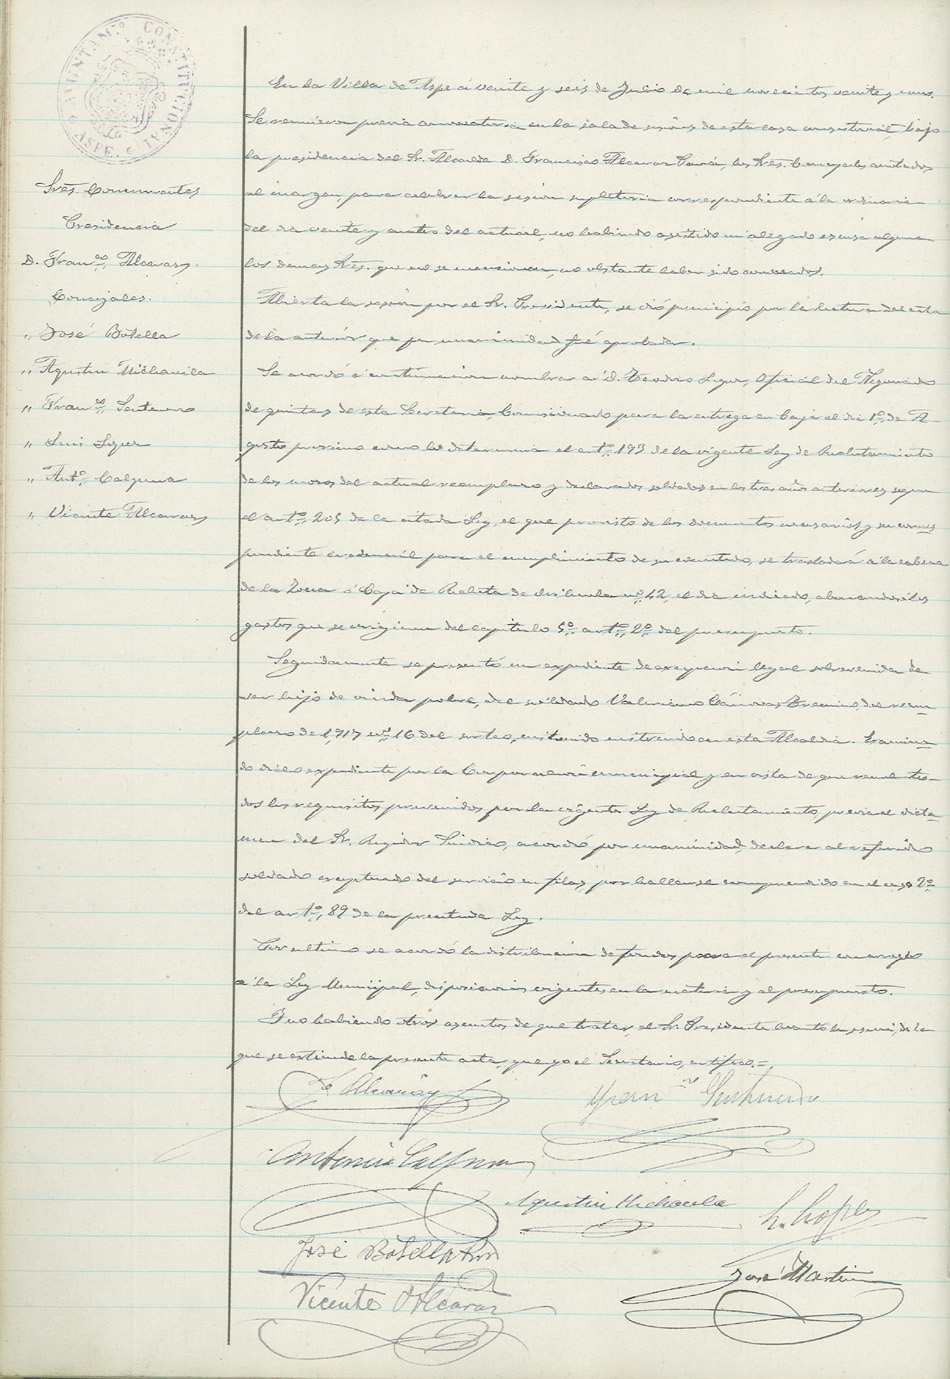 AYUNTAM.º CONSTITUCIONAL
ASPE.
Sres. Concurrentes
Presidencia
D. Fran.co Alcaraz
Concejales.
" José Botella
" Agustin Michavila
" Fran.co
" Luis Lopez
" Ant.º Calpena
" Vicente Alcaraz
En la Villa de Aspe á veinte y seis de Julio de mil novecientos veinte y uno.
Se reunieron previa convocatoria en la sala de sesiones de esta casa consistorial, bajo
la presidencia del Sr. Alcalde D. Francisco Alcaraz García, los Sres. Concejales anotados
al margen, para celebrar la sesión supletoria correspondiente á la ordinaria
del dia veinte y cuatro del actual, no habiendo asistido ni alegado escusa alguna
los demas Sres. que no se mencionan, no obstante haber sido convocados.
Abierta la sesión por el Sr. Presidente, se dió principio por la lectura del acta
de la anterior que por unanimidad fué aprobada.
Se acordó á continuacion nombrar á D. Teodoro Lopez, Oficial del Negociado
de quintas de esta Secretaria, Comisionado para la entrega en Caja el dia 1º de A-
gosto proximo como lo determina el artº 193 de la vigente Ley de Reclutamiento
de los mozos del actual reemplazo y declarados soldados en los tres años anteriores segun
el artº 205 de la citada Ley, el que provisto de los documentos necesarios y su corres-
pondiente credencial para el cumplimiento de su cometido, se trasladará á la cabeza
de la Zona ó Caja de Recluta de Orihuela nº 42, el dia indicado, abonandosele los
gastos que se originen del capitulo 5º artº 2º del presupuesto.
Seguidamente se presentó un expediente de excepcion legal sobrevenida de
ser hijo de viuda pobre, del soldado Valeriano Cánovas del reem-
plazo de 1,917 nº 16 del sorteo, instruido en esta Alcaldia. Examina-
do dicho expediente por la Corporacion municipal y en vista de que reune to-
dos los requisitos prevenidos por la vigente Ley de Reclutamiento, previo el dicta-
men del Sr. Regidor Sindico, acordó por unanimidad, declarar al referido
soldado exceptuado del servicio en filas, por hallarse comprendido en el caso 2º
del artº 89 de la precitada Ley.
Por ultimo se acordó la distribucion de fondos para el presente con arreglo
a la Ley Municipal, disposiciones vigentes en la materia y al presupuesto.
Y no habiendo otros asuntos de que tratar el Sr. Presidente levantó la sesión, de la
que se estiende la presente acta, que yo el Secretario, certifico.=
Fº Alcaraz
Fran.co
Antonio Calpena
Agustin Michavila
L. Lopez
José Botella
José Martin
Vicente Alcaraz